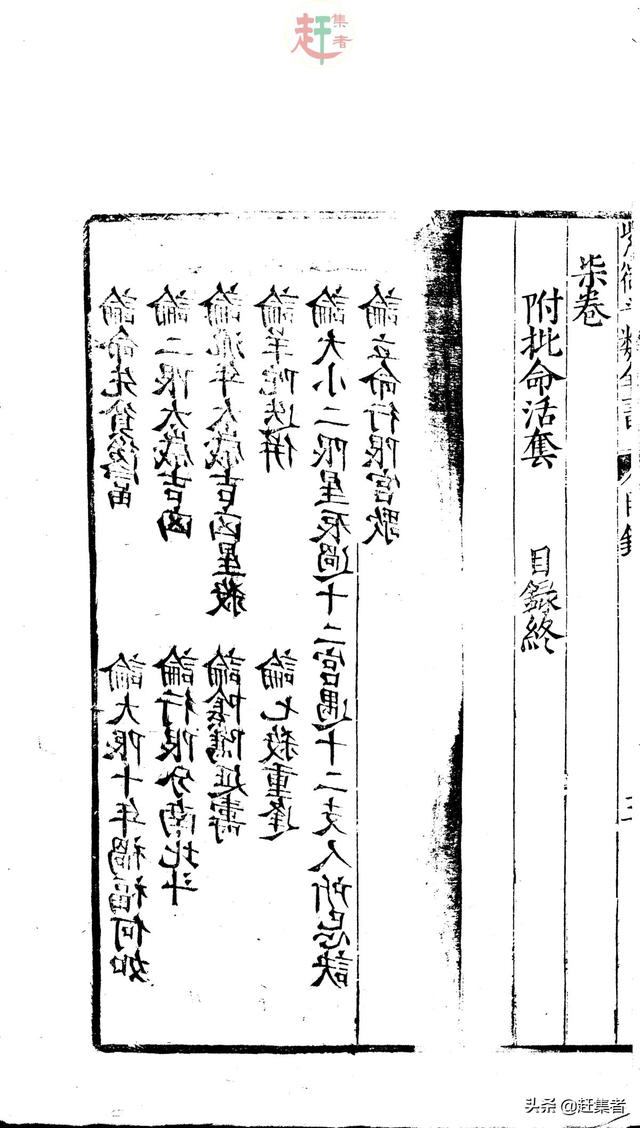 數全書 目錄 三
柒卷
附批命活套 目錄終
論命先貧後富 論大限十年禍福何如
論二限太歲吉凶 論行限分南北斗
論流年太歲吉凶星殺 論陰隲延壽
論羊陀迭併 論七殺重逢
論大小二限星辰過十二宮遇十二支人所忌訣
論立命行限宮歌
赶集者
头条 @赶集者